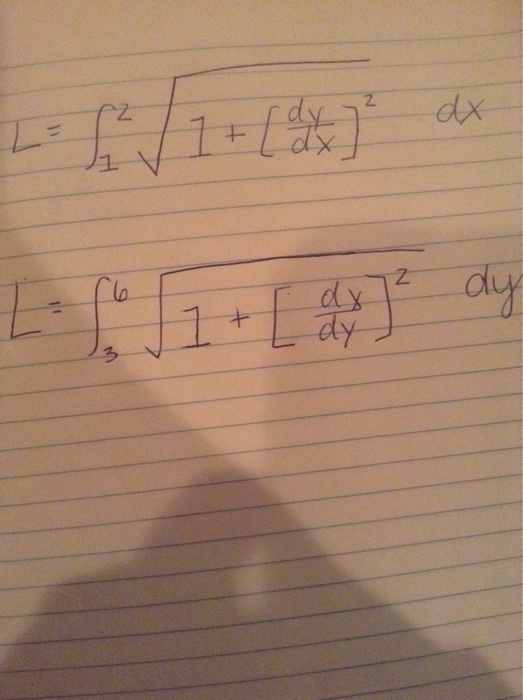 L = ∫₁² √(1 + [dy/dx]²) dx
L = ∫₃⁶ √(1 + [dx/dy]²) dy